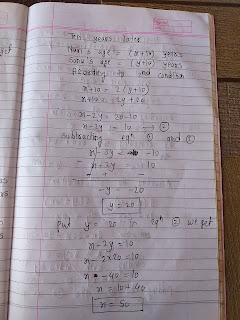 Ten years later
Nuri's age = (x+10) years
Sonu's age = (y+10) years
According to 2nd condition
x+10 = 2(y+10)
x+10 = 2y+20
x-2y = 20-10
x-2y = 10 — ②
Subtracting eqn ② and ①
x-3y = -10
x-2y = 10
- + -
-y = -20
y=20
put y = 20 in eqn ② we get
x-2y = 10
x-2×20 = 10
x-40 = 10
x = 10+40
x = 50